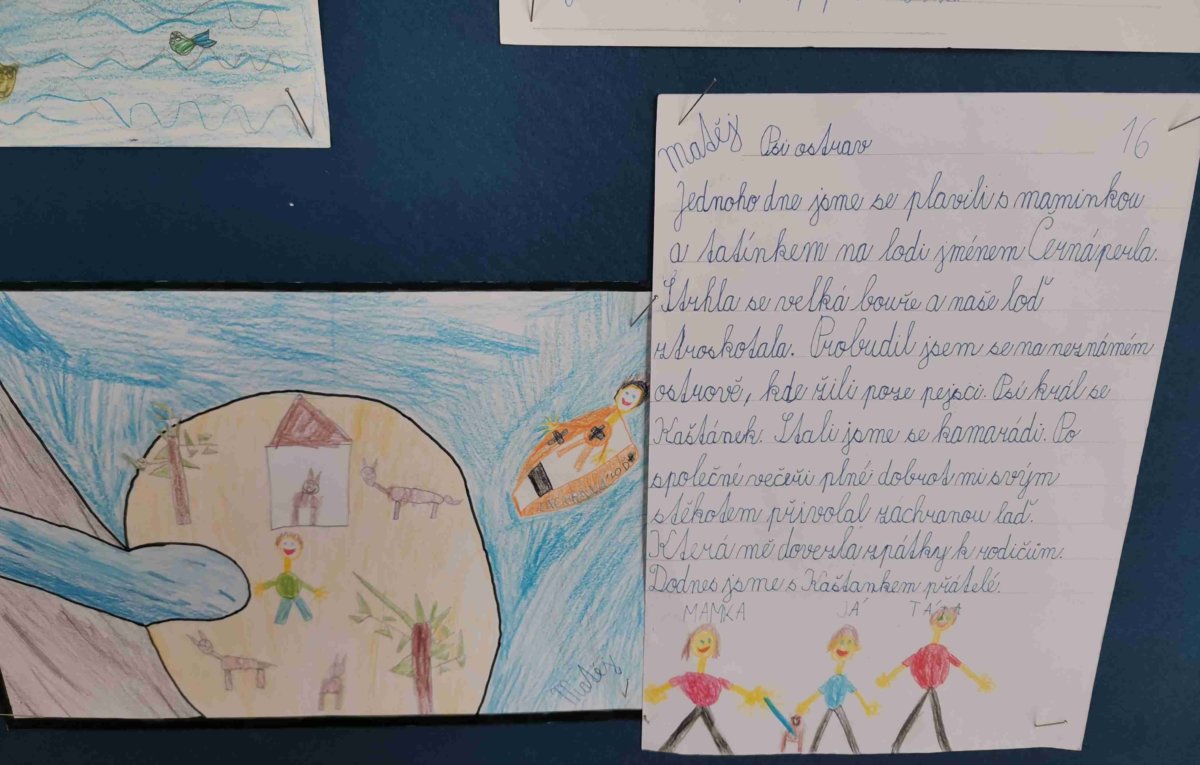 Matěj Psí ostrav 16
Jednoho dne jsme se plavili s maminkou
a tatínkem na lodi jménem Černá perla.
Strhla se velká bouře a naše loď
ztroskotala. Probudil jsem se na neznámém
ostrově, kde žili poze pejsci. Psí král se
Kaštánek. Stali jsme se kamarádi. Po
společné večeři plné dobrot mi svým
štěkotem přivolal záchranou laď.
Která mě dovezla zpátky k rodičům.
Dodnes jsme s Kaštankem přátelé.
MAMKA JÁ TÁTA
Matěj